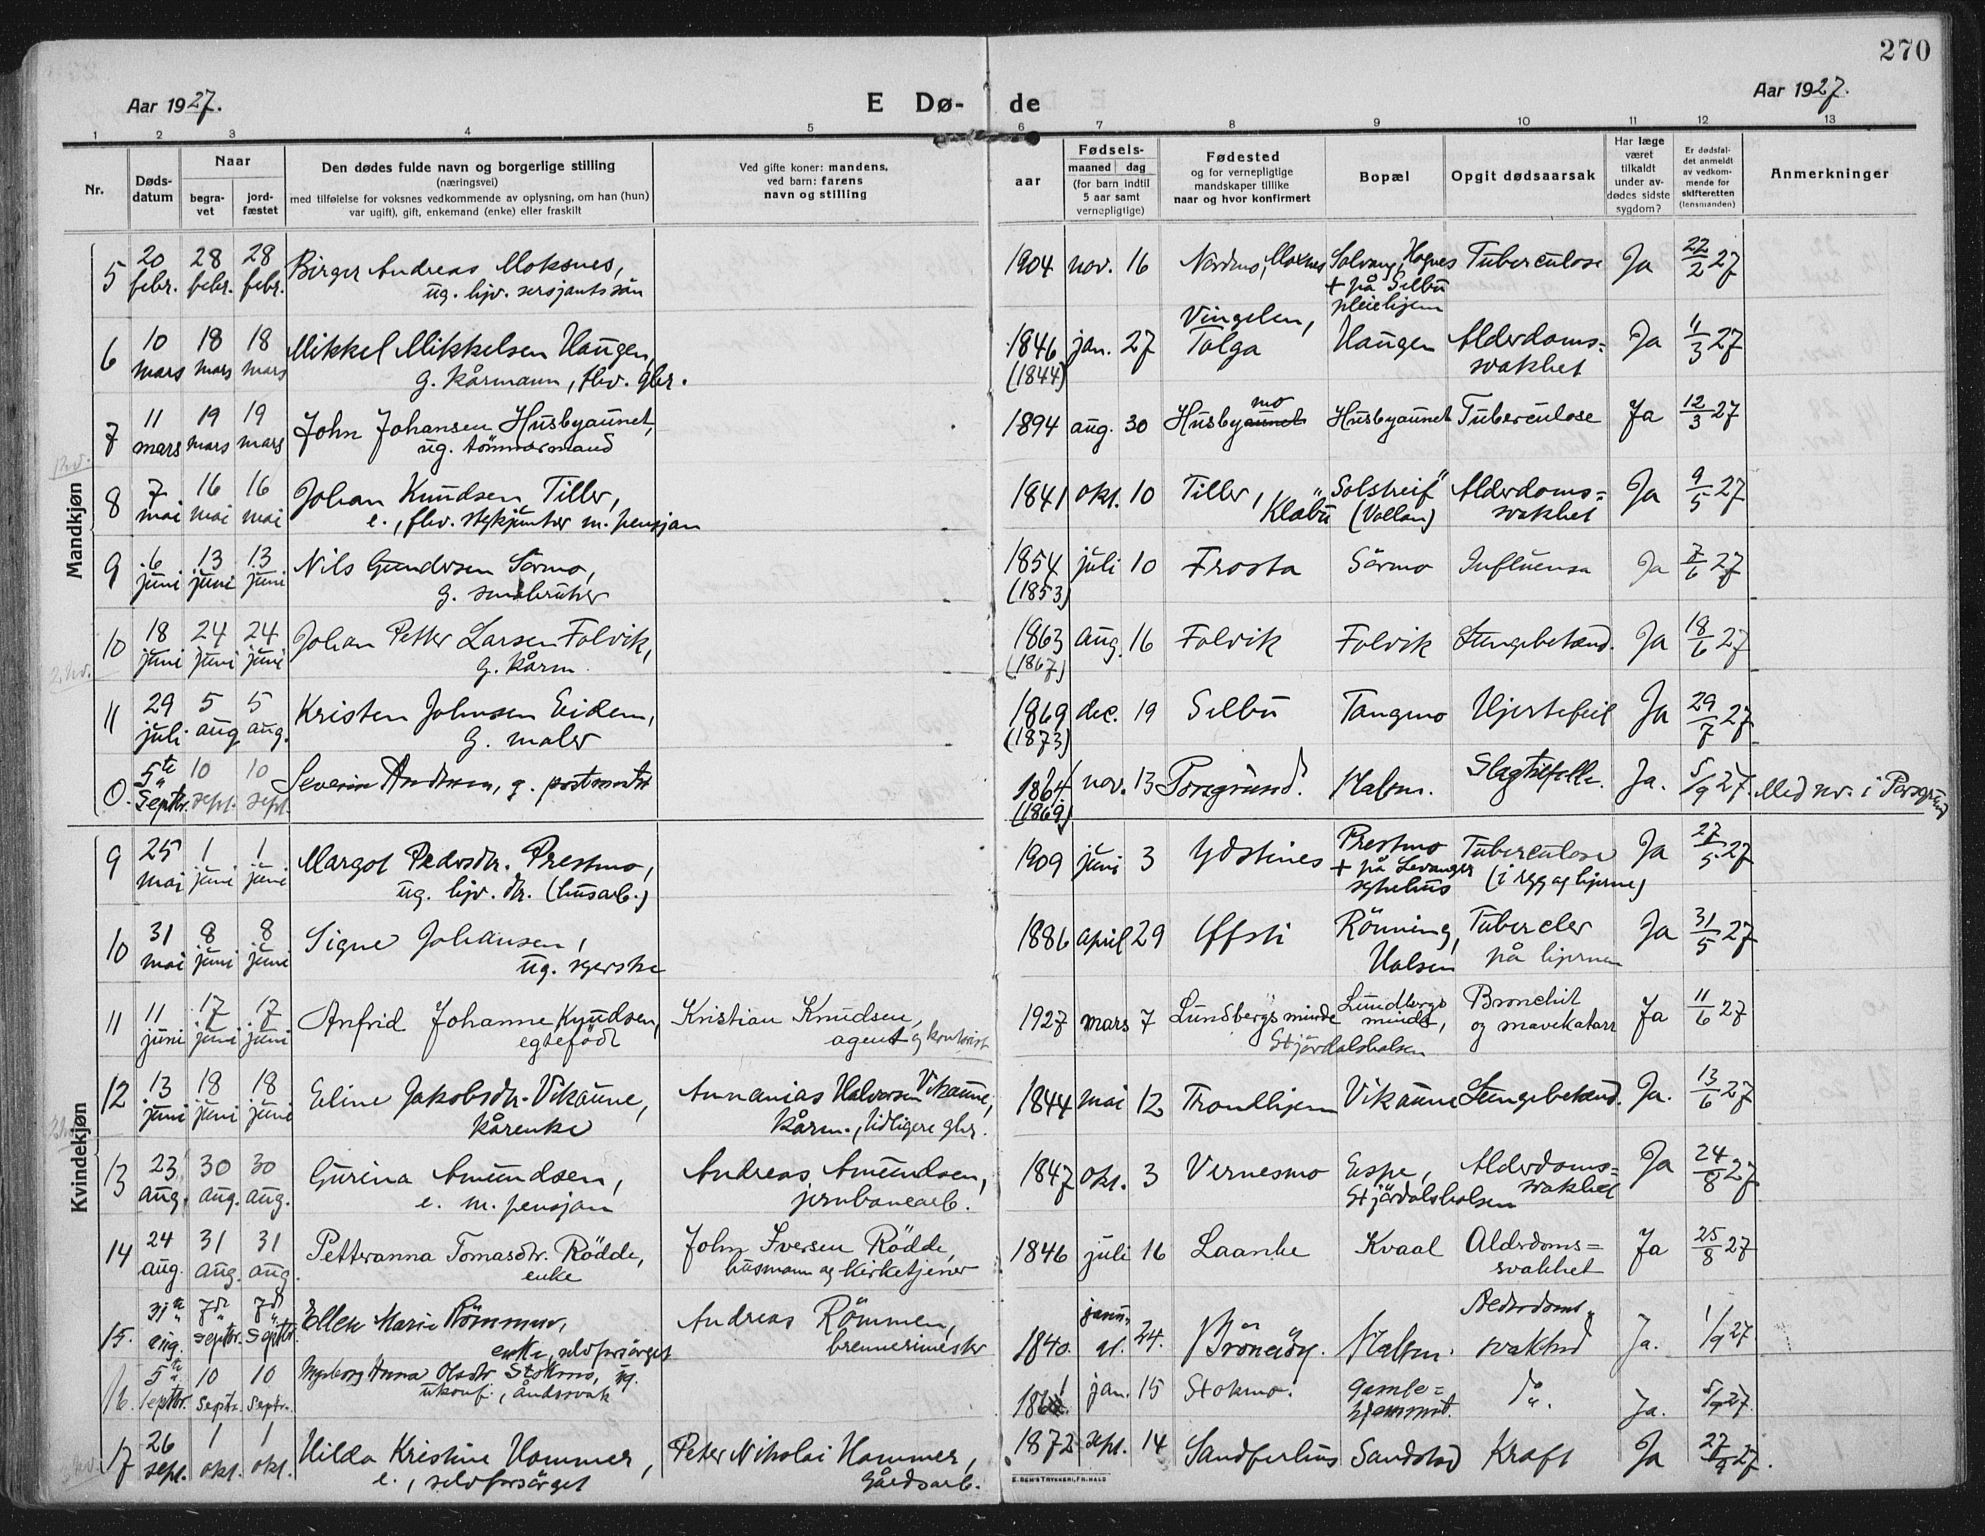 270
Aar 1927.
E Dø- de
Aar 1927.
1 2 3 4 5 6 7 8 9 10 11 12 13
Nr.
Døds-
datum
Naar
begra-
vet
jord-
fæstet
Den dødes fulde navn og borgerlige stilling
(næringsvei)
med tilføielse for voksnes vedkommende av oplysning, om han (hun)
var ugift), gift, enkemand (enke) eller fraskilt
Ved gifte koner: mandens,
ved barn: farens
navn og stilling
Fødsels-
aar
maaned dag
(for barn indtil
5 aar samt
vernepligtige)
Fødested
og for vernepligtige
mandskaper tillike
naar og hvor konfirmert
Bopæl
Opgit dødsaarsak
Har læge
været
tilkaldt
under av-
dødes sidste
sygdom?
Er dødsfal-
det anmeldt
av vedkom-
mende for
skifteretten
(lensmanden)
Anmerkninger
Mandkjøn
5 20 febr. 28 febr. 28 febr. Birger Andreas Moksnes, 1904 nov. 16 Nordmo, Moxnes Solvang, Hognes Tuberculose Ja 22/2 27
ug. hjv. sersjantssön + på Selbu
pleiehjem
6 10 mars 18 mars 18 mars Mikkel Mikkelsen Haugen, 1846 jan. 27 Vingelen, Tolga Haugen Alderdoms= Ja 11/3 27
g. kårmann, fhv. gbr. (1844) svakhet
7 11 mars 19 mars 19 mars John Johansen Husbyaunet, 1894 aug. 30 Husbyaunet mo Husbyaunet Tuberculose Ja 12/3 27
ug. tömmermand
8 7 mai 16 mai 16 mai Johan Knudsen Tiller, 1841 okt. 10 Tiller, Klæbu "Solstreif" Alderdoms= Ja 9/5 27
e., fhv. m. pensjon (Vollan) svakhet
9 6 juni 13 juni 13 juni Nils Gundersen Sörmo, 1854 juli 10 Frosta Sörmo Influensa Ja 7/6 27
g. småbruker (1853)
10 18 juni 24 juni 24 juni Johan Petter Larsen Folvik, 1863 aug. 16 Folvik Folvik Lungebetænd. Ja 18/6 27
g. kårm. (1867)
11 29 juli 5 aug. 5 aug. Kristen Johnsen Eidem, 1869 dec. 19 Selbu Tangmo Hjertefeil Ja 29/7 27
g. maler (1873)
0. 5te Septbr. 10 sept. 10 sept. Severin Andersen, g. postmester 1864 nov. 13 Porsgrund. Halsen. Slagtilfelle. Ja. 5/9 27. Med nr. i Porsgrund
(1869)
Kvindekjøn
9 25 mai 1 juni 1 juni Margot Pedersdtr. Prestmo, 1909 juni 3 Ydstines Prestmo Tuberculose Ja 27/5 27
ug. hjv. dtr. (husarb.) + på Levanger (i rygg og hjerne)
sykehus
10 31 mai 8 juni 8 juni Signe Johansen, 1886 april 29 Öfsti Rönning, Tubercler Ja 31/5 27
ug. syerske Halsen på hjernen
11 11 juni 17 juni 17 juni Anfrid Johanne Knudsen, Kristian Knudsen, 1927 mars 7 Lundbergs minde Lundbergs Bronchit Ja 11/6 27
egtefödt agent og kontorist minde, og mavekatarr
Stjördalshalsen
12 13 juni 18 juni 18 juni Eline Jakobsdtr. Vikaune, Annanias Halvorsen Vikaune, 1844 mai 12 Trondhjem Vikaune Lungebetænd. Ja. 13/6 27
kårenke kårm., tidligere gbr.
13 23 aug. 30 aug. 30 aug. Gurina Amundsen, Andreas Amundsen, 1847 okt. 3 Vernesmo Espe, Alderdoms= Ja 24/8 27
e. m. pensjon jernbanearb. Stjördalshalsen svakhet
14 24 aug. 31 aug. 31 aug. Petteranna Tomasdtr. Rödde, John Iversen Rödde, 1846 juli 16 Laanke Kvaal Alderdoms= Ja 25/8 27
enke husmann og kirketjener svakhet
15. 31te aug. 7de septbr. 7de septbr. Ellen Marie Römmen, Andreas Römmen, 1840. janu- ar. 24. Brönöy. Halsen. Alderdoms- Ja. 1/9 27
enke, selvforsörget brennerimester svakhed
16. 5te septbr. 10 septr. 10 septr. Ingeborg Anna Olsdtr. Stokmo, ug. 1861 jan. 15 Stokmo. Gamle= do. Ja. 5/9 27.
ukonf., åndssvak hjemmet.
17 26 sept. 1 okt. 1 okt. Hilda Kristine Hammer, Peter Nikolai Hammer, 1872 sept. 14 Sandferhus Sandstad Kræft Ja 27/9 27.
e., selvforsörget Gårdsarb.
E. SEM'S TRYKKERI, FR.HALD